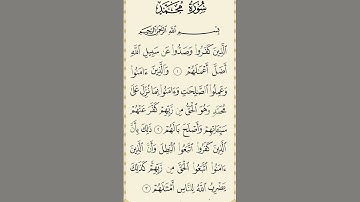 سُورَةُ مُحَمَّد
بِسْمِ اللَّهِ الرَّحْمَٰنِ الرَّحِيمِ
الَّذِينَ كَفَرُوا وَصَدُّوا عَن سَبِيلِ اللَّهِ
أَضَلَّ أَعْمَٰلَهُمْ ١ وَالَّذِينَ ءَامَنُوا
وَعَمِلُوا الصَّٰلِحَٰتِ وَءَامَنُوا بِمَا نُزِّلَ عَلَىٰ
مُحَمَّدٍ وَهُوَ الْحَقُّ مِن رَّبِّهِمْ كَفَّرَ عَنْهُمْ
سَيِّـَٔاتِهِمْ وَأَصْلَحَ بَالَهُمْ ٢ ذَٰلِكَ بِأَنَّ
الَّذِينَ كَفَرُوا اتَّبَعُوا الْبَٰطِلَ وَأَنَّ الَّذِينَ
ءَامَنُوا اتَّبَعُوا الْحَقَّ مِن رَّبِّهِمْ كَذَٰلِكَ
يَضْرِبُ اللَّهُ لِلنَّاسِ أَمْثَٰلَهُمْ ٣